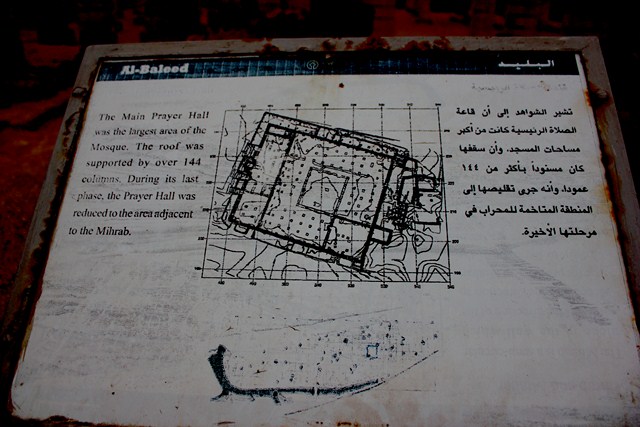 Al-Baleed
البليد
The Main Prayer Hall
was the largest area of the
Mosque. The roof was
supported by over 144
columns. During its last
phase, the Prayer Hall was
reduced to the area adjacent
to the Mihrab.
تشير الشواهد إلى أن قاعة
الصلاة الرئيسية كانت من أكبر
مساحات المسجد، وأن سقفها
كان مسنوداً بأكثر من ١٤٤
عمودا، وأنه جرى تقليصها إلى
المنطقة المتاخمة للمحراب في
مرحلتها الأخيرة.